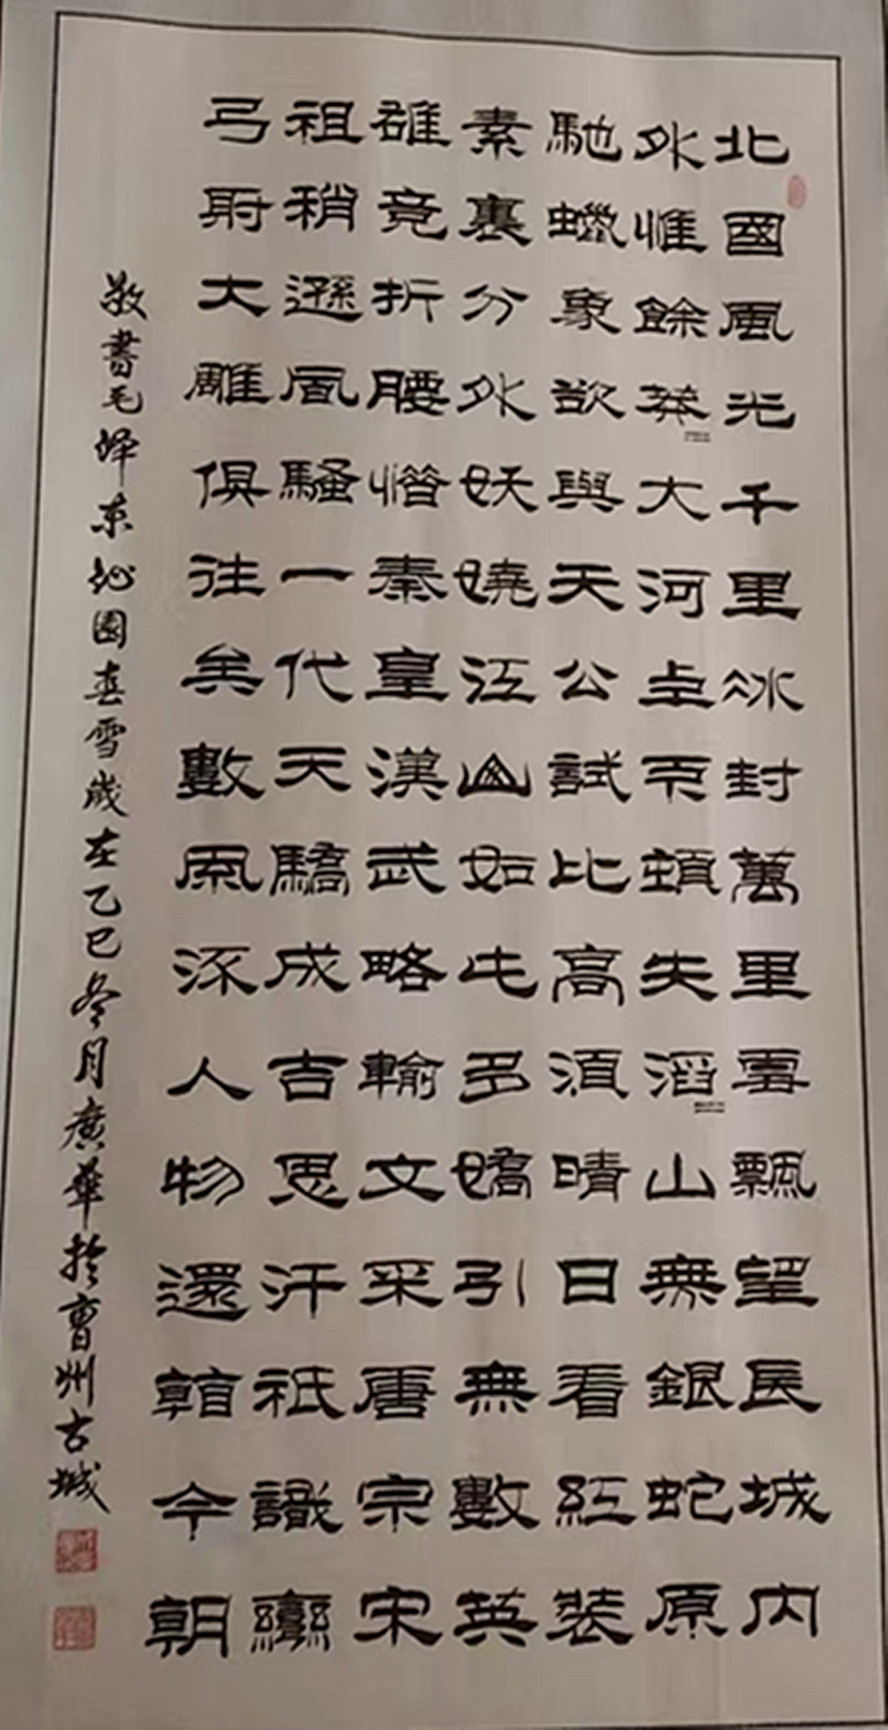 北國風光千里冰封萬里雪飄望長城內
外惟餘莽〻大河上下頓失滔〻山舞銀蛇原
馳蠟象欲與天公試比高須晴日看紅裝
素裹分外妖嬈江山如此多嬌引無數英
雄竟折腰惜秦皇漢武略輸文采唐宗宋
祖稍遜風騷一代天驕成吉思汗祇識彎
弓射大雕俱往矣數風流人物還看今朝
敬書毛澤東沁園春雪歲在乙巳冬月廣華於曹州古城